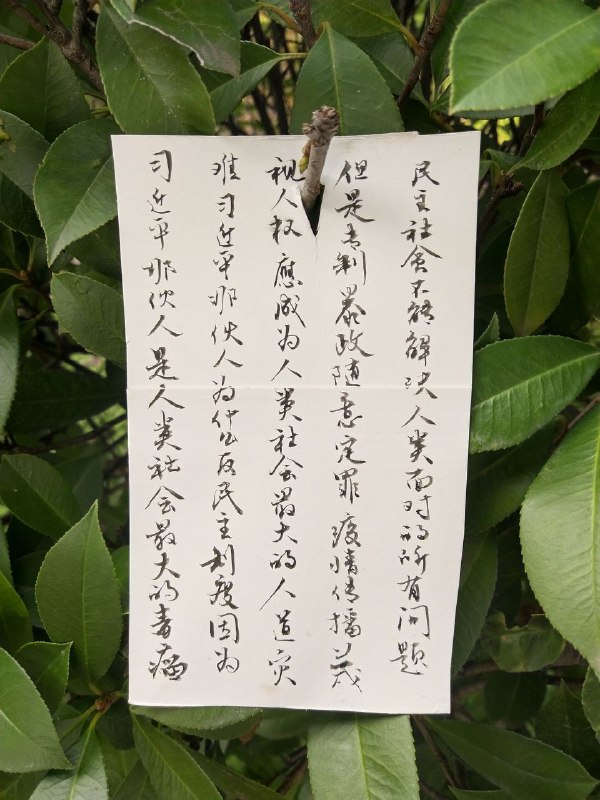 民主社会不能解决人类面对的所有问题
但是专制暴政随意定罪疫情传播蔑
视人权應成为人类社会最大的人道灾
难习近平那伙人为什么反民主制度因为
习近平那伙人是人类社会最大的毒瘤